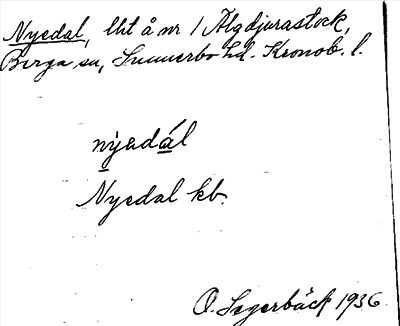 Nyedal, lht å nr 1 Älgdjurastock,
Berga sn, Sunnerbo hd. Kronob. l.
nỳedál
Nyedal kb.
O. Segerbäck 1936